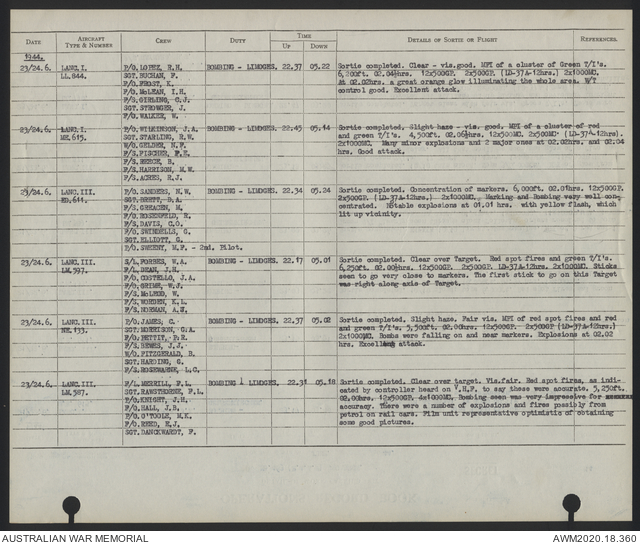 DATE AIRCRAFT TYPE & NUMBER CREW DUTY TIME UP DOWN DETAILS OF SORTIE OR FLIGHT REFERENCES.
1944.
23/24.6. LANC.I. P/O.LOPEZ, R.H. BOMBING - LIMOGES. 22.37 05.22 Sortie completed. Clear - vis.good. MPI of a cluster of Green T/I's.
LL.844. SGT.BUCHAN, F. 6,200ft. 02.04½hrs. 12x500GP. 2x500GP. (LD-37A-12hrs.) 2x1000MC.
P/O.FROST, K. At 02.02hrs. a great orange glow illuminating the whole area. W/T
F/O.McLEAN, I.H. control good. Excellent attack.
F/S.GIRLING, C.J.
SGT.STROWGER, J.
F/O.WALKER, W.
23/24.6. LANC.I. P/O.WILKINSON, J.A. BOMBING - LIMOGES. 22.45 05.14 Sortie completed. Slight haze - vis. good. MPI of a cluster of red
ME.615. SGT.STARLING, R.W. and green T/I's. 4,500ft. 02.06½hrs. 12x500MC. 2x500MC. (LD-37A-12hrs.)
W/O.GELDER, N.F. 2x1000MC. Many minor explosions and 2 major ones at 02.02hrs. and 02.04
F/S.FISCHER, F.E. hrs. Good attack.
F/S.REECE, B.
F/S.HARRISON, M.W.
F/S.ACRES, R.J.
23/24.6. LANC.III. P/O.SANDERS, N.W. BOMBING - LIMOGES. 22.34 05.24 Sortie completed. Concentration of markers. 6,000ft. 02.01hrs. 12x500GP.
ED.611. SGT.BRETT, D.A. 2x500GP. (LD-37A-12hrs.) 2x1000MC. Marking and Bombing very well con-
F/S.GREACEN, M. centrated. Notable explosions at 01.01 hrs. with yellow flash, which
F/O.ROSENFELD, R. lit up vicinity.
F/S.DAVIS, C.O.
F/O.SWINDELLS, G.
SGT.ELLIOTT, G.
P/O.SWEENY, M.F. - 2nd. Pilot.
23/24.6. LANC.III. S/L.FORBES, W.A. BOMBING - LIMOGES. 22.17 05.01 Sortie completed. Clear over Target. Red spot fires and green T/I's.
LM.597. F/L.DEAN, J.H. 6,250ft. 02.00½hrs. 12x500GP. 2x500GP. LD-37A-12hrs. 2x1000MC. Sticks
F/O.COSTELLO, J.A. seen to go very close to markers. The first stick to go on this Target
F/O.GRIME, W.J. was right along axis of Target.
F/S.McLEOD, W.
F/S.WORDEN, K.L.
F/S.NORMAN, A.U.
23/24.6. LANC.III. P/O.JAMES, C. BOMBING - LIMOGES. 22.37 05.02 Sortie completed. Slight haze. Fair vis. MPI of red spot fires and red
NE.133. SGT.MORRISON, G.A. and green T/I's. 5,500ft. 02.06hrs. 12x500GP. 2x500GP (LD-37A-12hrs.)
F/O.PETTIT, P.R. 2x1000MC. Bombs were falling on and near markers. Explosions at 02.02
F/S.BEWES, J.J. hrs. Excellent attack.
W/O.FITZGERALD, B.
SGT.HARDING, G.
F/S.ROSEWARNE, L.C.
23/24.6. LANC.III. F/L.MERRILL, F.L. BOMBING - LIMOGES. 22.31 05.18 Sortie completed. Clear over target. Vis.fair. Red spot fires, as indi-
LM.587. SGT.RAWSTHORNE, F.L. cated by controller heard on V.H.F. to say these were accurate. 5,250ft.
P/O.KNIGHT, J.H. 02.00hrs. 12x500GP. 4x1000MC. Bombing seen was very impresive for
F/O.HALL, J.B. accuracy. There were a number of explosions and fires possibly from
F/S.O'TOOLE, M.K. petrol on rail cars. Film unit representative optimistic of obtaining
F/O.REED, E.J. some good pictures.
SGT.DANCKWARDT, F.
AUSTRALIAN WAR MEMORIAL AWM2020.18.360